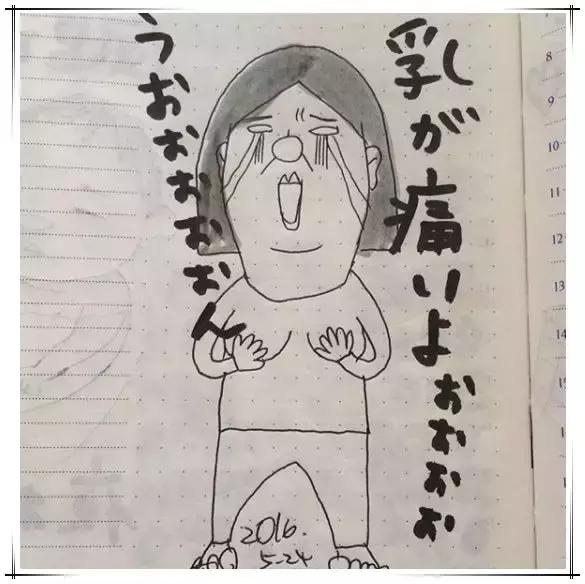 乳が痛いよぉぉぉぉ
うおぉぉぉぉん
2016.
5-24
8
9
10
11
12
13
14